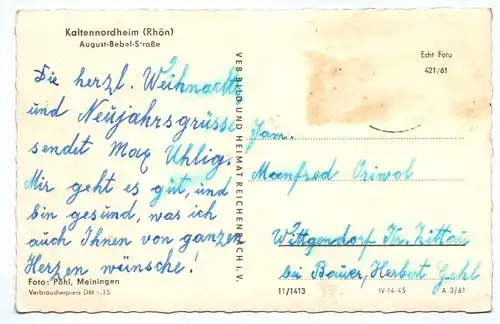 Kaltennordheim (Rhön)
August-Bebel-Straße
Echt Foto
421/61
Die herzl. Weihnachts
und Neujahrsgrüsse
sendet Max Uhlig.
Mir geht es gut, und
bin gesund, was ich
auch Ihnen von ganzen
Herzen wünsche!
Foto: Pöhl, Meiningen
Verbraucherpreis DM -,15
VEB BILD UND HEIMAT REICHENBACH i. V.
Fam.
Manfred
Wittgendorf Kr. Zittau
bei Bauer, Herbert
11/1413
IV-14-45
A 3/61